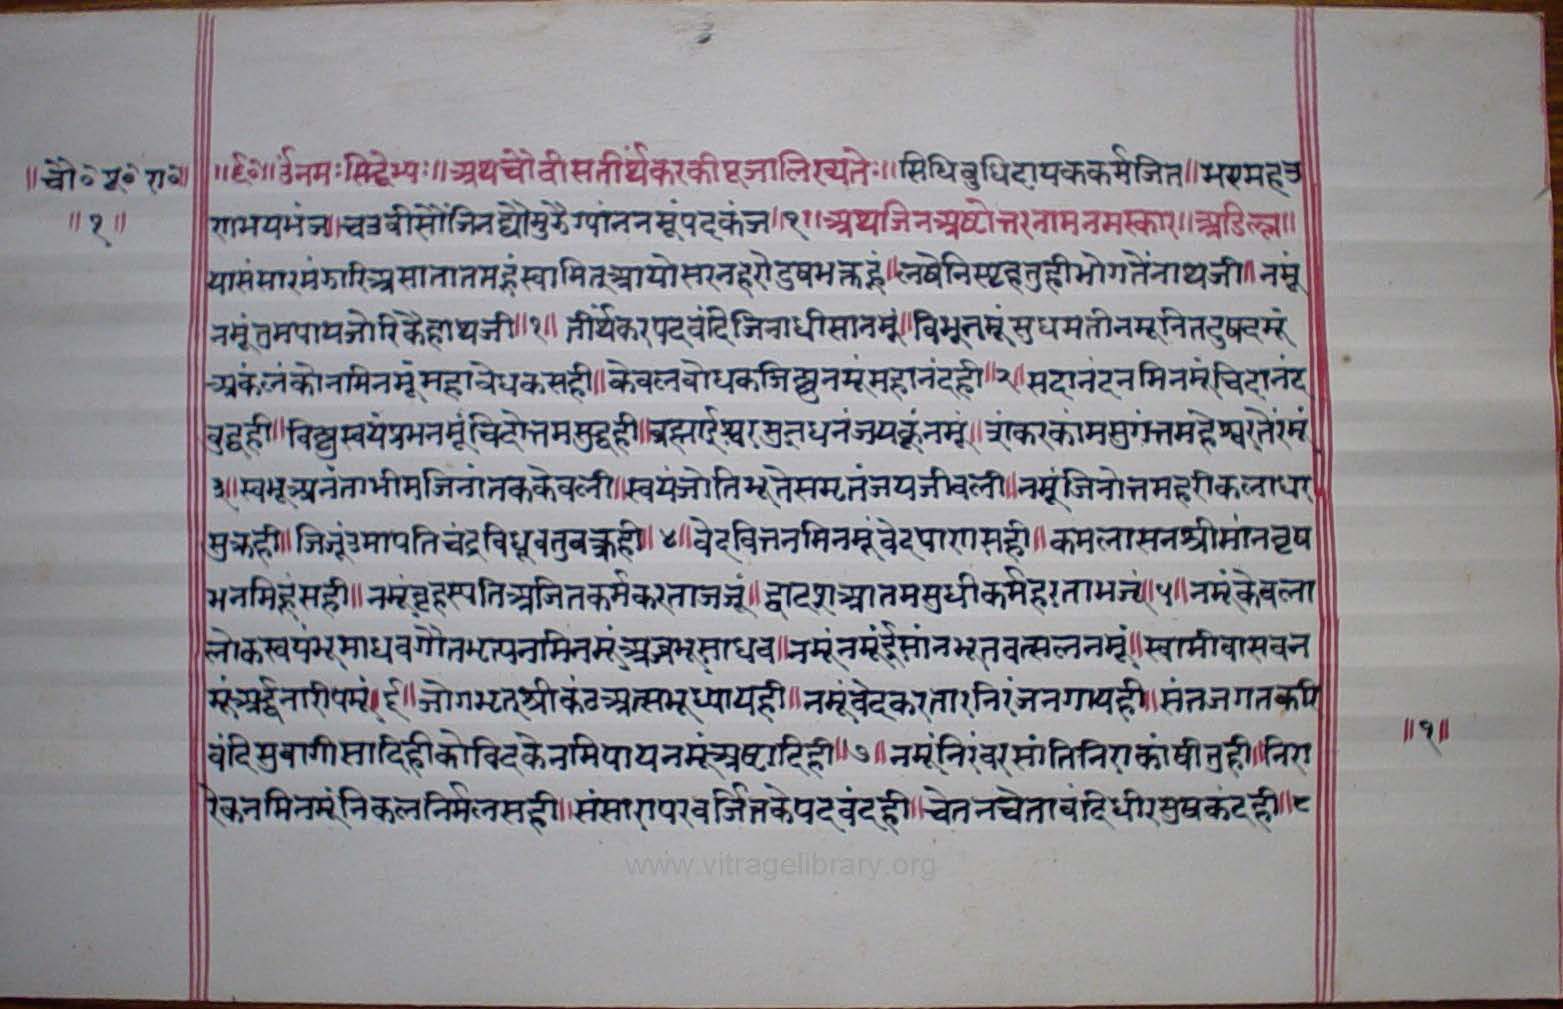 ॥चौ॰पू॰रा॰॥
॥१॥
॥र्द॰॥ उँनमःसिद्धेभ्यः॥ अथचौवीसतीर्थंकरकीपूजालिख्यतेः॥ सिधिबुधिदायककर्मजित॥ भरमहउ
राभयभंज॥ चउवीसौंजिनद्यौमुझैग्पांननमूंपदकंज॥१॥ अथजिनअष्टोत्तरनामनमस्कार॥ अडिल्ल॥
यासंसारमंझारिअसातातमहूंस्वामितूआयोसरनहरोदुषभक्तहूं॥ लषेनिस्पृहतुहीभोगतैंनाथजी॥ नमूं
नमूंतुमपायजोरिकैहाथजी॥१॥ तीर्थंकरपदवंदिजिनाधीसानमूं॥ विभूनमूंसुधमतीनमूनितदुषदमूं
अकलंकोनमिनमूंमहावेधकसही॥ केवलबोधकजिष्णुनमूंमहानंदही॥२॥ सदानंदनमिनमूंचिदानंद
बुद्धही॥ विष्णुस्वयंप्रभनमूंचिदोत्तमसुद्धही॥ ब्रह्माईश्वरमुतधनंजयकूंनमूं॥ शंकरकांमसुगंत्तमहेश्वरतैंरमूं
३॥ स्वभूअनंताभीमजिनांतककेवली॥ स्वयंजोतिभूतेसमृतंजयजीवली॥ नमूंजिनोत्तमहरीकलाधा
मुक्तही॥ जिजूंउमापतिचंद्रविधूचतुवक्त्रही॥४॥ वेदवित्तनमिनमूंवेदपारासही॥ कमलासनश्रीमांनवृष
भनमिहूंसही॥ नमूंबृहस्पतिअजितकर्मकरताजजूं॥ द्वादशआतमसुधीकर्महरताभजूं॥५॥ नमूंकेवला
लोकस्वयंभूमाधवगौतमृत्यनमिनमूंअजभूसाधव॥ नमूंनमूंईसांनभूतवत्सलनमूं॥ स्वामीवासवन
मूंअर्द्धनारीपमूं॥६॥ जोगभृतश्रीकंठअत्सभूध्यायही॥ नमूंवेदकरतारनिरंजनगायही॥ संतजगतकपि
वंदिसुवागीसादिहीकोविदकेनमिपायनमूंअष्टादिही॥७॥ नमूंनिरंवरसांतिनिराकांषीतुही॥ निरा
रेकनमिनमूंनिकलनिर्मलसही॥ संसारापरवर्जितकेपदवंदही॥ चेतनचेतावंदिधीरसुषकंदही॥८
॥१॥
www.vitragelibrary.org